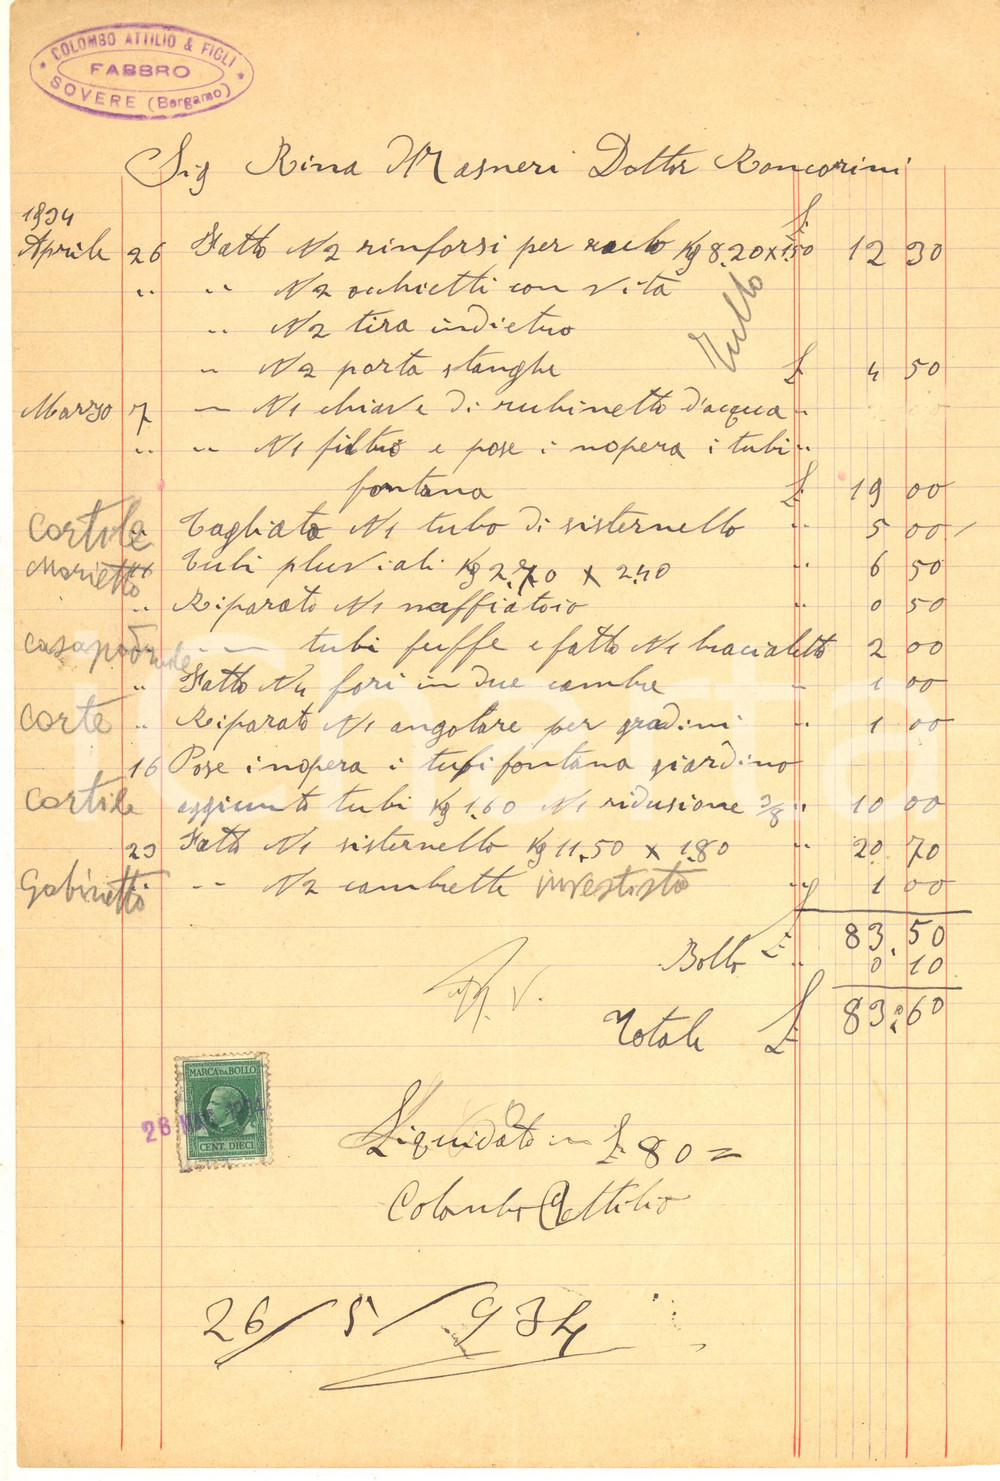 COLOMBO ATTILIO & FIGLI
FABBRO
SOVERE (Bergamo)
Sig Rina Masneri Dottor Roncorini
1934 £
Aprile 26 Fatto N2 rinforsi per Kg 8.20 x 1.50 12 30
" " N2 ochietti con vita
" N2 tira indietro
Tullo
" N2 porta stanghe £ 4 50
Marzo 7 " N1 chiave di rubinetto d'acqua "
" " N1 filtro e pose i nopera i tubi "
fontana £ 19 00
Cortile " Tagliato N1 tubo di sisternello " 5 00
Marietto " Tubi pluviali Kg 2.70 x 2.40 " 6 50
" Riparato N1 naffiatoio " 0 50
Casa padronale " " tubi e fatto N1 bracialetto 2 00
" Fatto N4 fori in due cambre " 1 00
Corte " Riparato N1 angolare per gradini " 1 00
16 Pose inopera i tubi fontana giardino
Cortile aggiunto tubi Kg 1.60 N1 ridusione 3/8 " 10 00
23 Fatto N1 sisternello Kg 11.50 x 1.80 " 20 70
Gabinetto " " N2 cambrette investisto " 1 00
£ 83.50
Bollo " 0 10
Totale £ 83.60
MARCA DA BOLLO
CENT. DIECI
26 MAG 1934
Liquidato in £ 80 =
Colombo Attilio
26/5/934